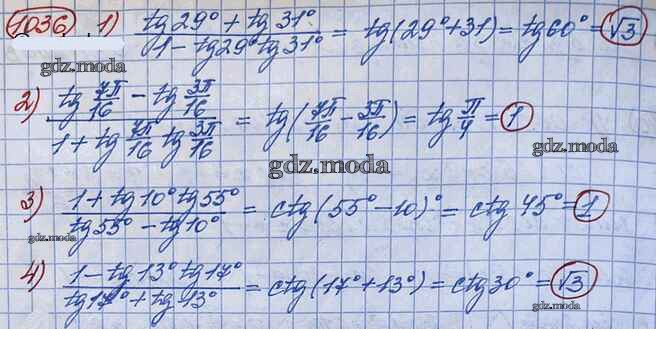 1036. 1) (tg29° + tg31°)/(1 - tg29°tg31°) = tg(29°+31) = tg60° = √3
gdz.moda
gdz.moda
2) (tg 7π/16 - tg 3π/16)/(1 + tg 7π/16 tg 3π/16) = tg(7π/16 - 3π/16) = tg π/4 = 1
gdz.moda
gdz.moda
3) (1 + tg10° tg55°)/(tg55° - tg10°) = ctg(55° - 10)° = ctg 45° = 1
gdz.moda
4) (1 - tg13° tg17°)/(tg17° + tg13°) = ctg(17° + 13°) = ctg30° = √3
gdz.moda